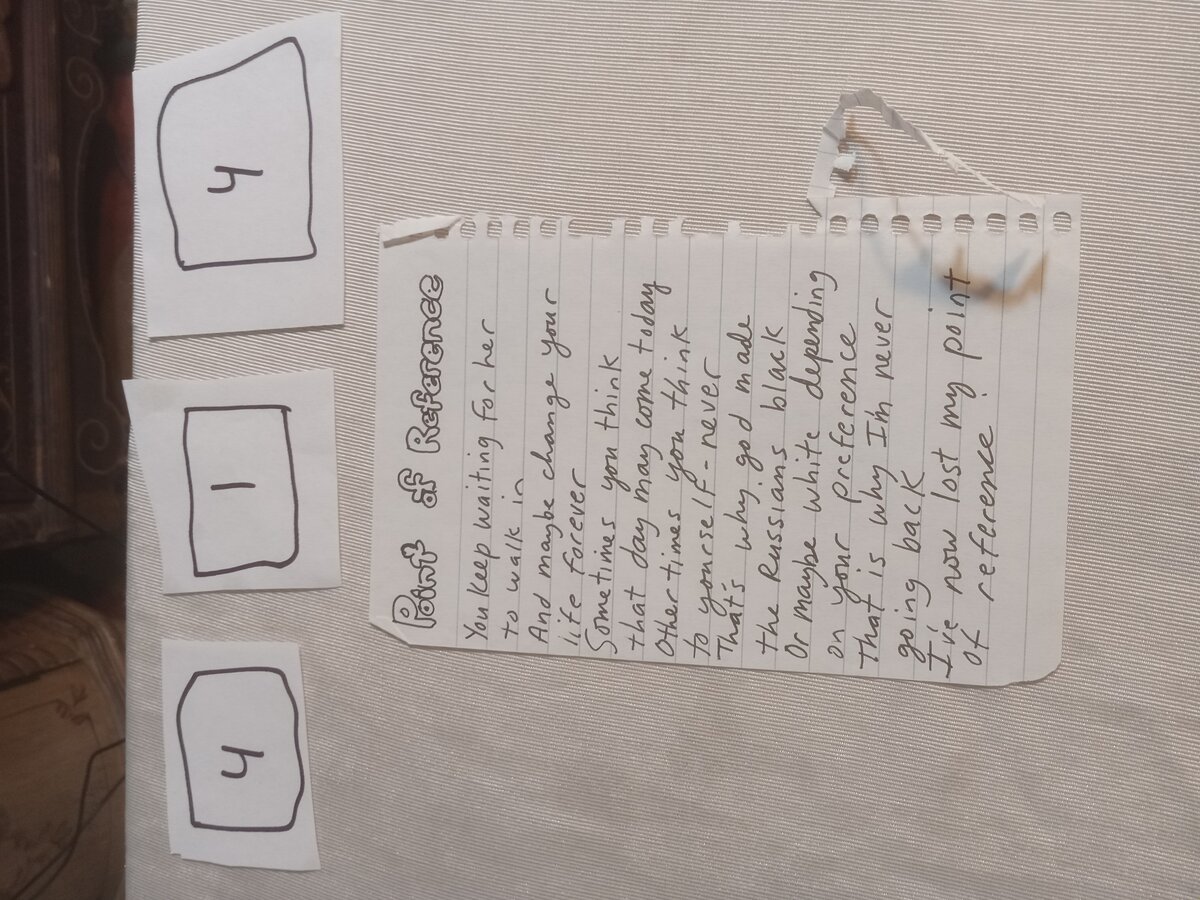 4
1
4
Point of Reference
You keep waiting for her
to walk in
And maybe change your
life forever
Sometimes you think
that day may come today
Other times you think
to yourself - never
That's why god made
the Russians black
Or maybe white depending
on your preference
That is why I'm never
going back
I've now lost my point
of reference